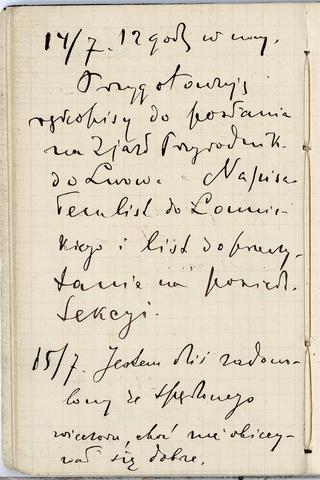 14/7. 12 godz w nocy.
Przygotowuję
rękopisy do posłania
na Zjazd Przyrodnik.
do Lwowa. Napisa
łem list do Łomnic-
kiego i list do przeczy-
tania na posiedz.
Sekcyi.
15/7. Jestem dziś zadowo-
lony ze spędzonego
wieczoru, choć nie obiecy-
wał się dobrze.